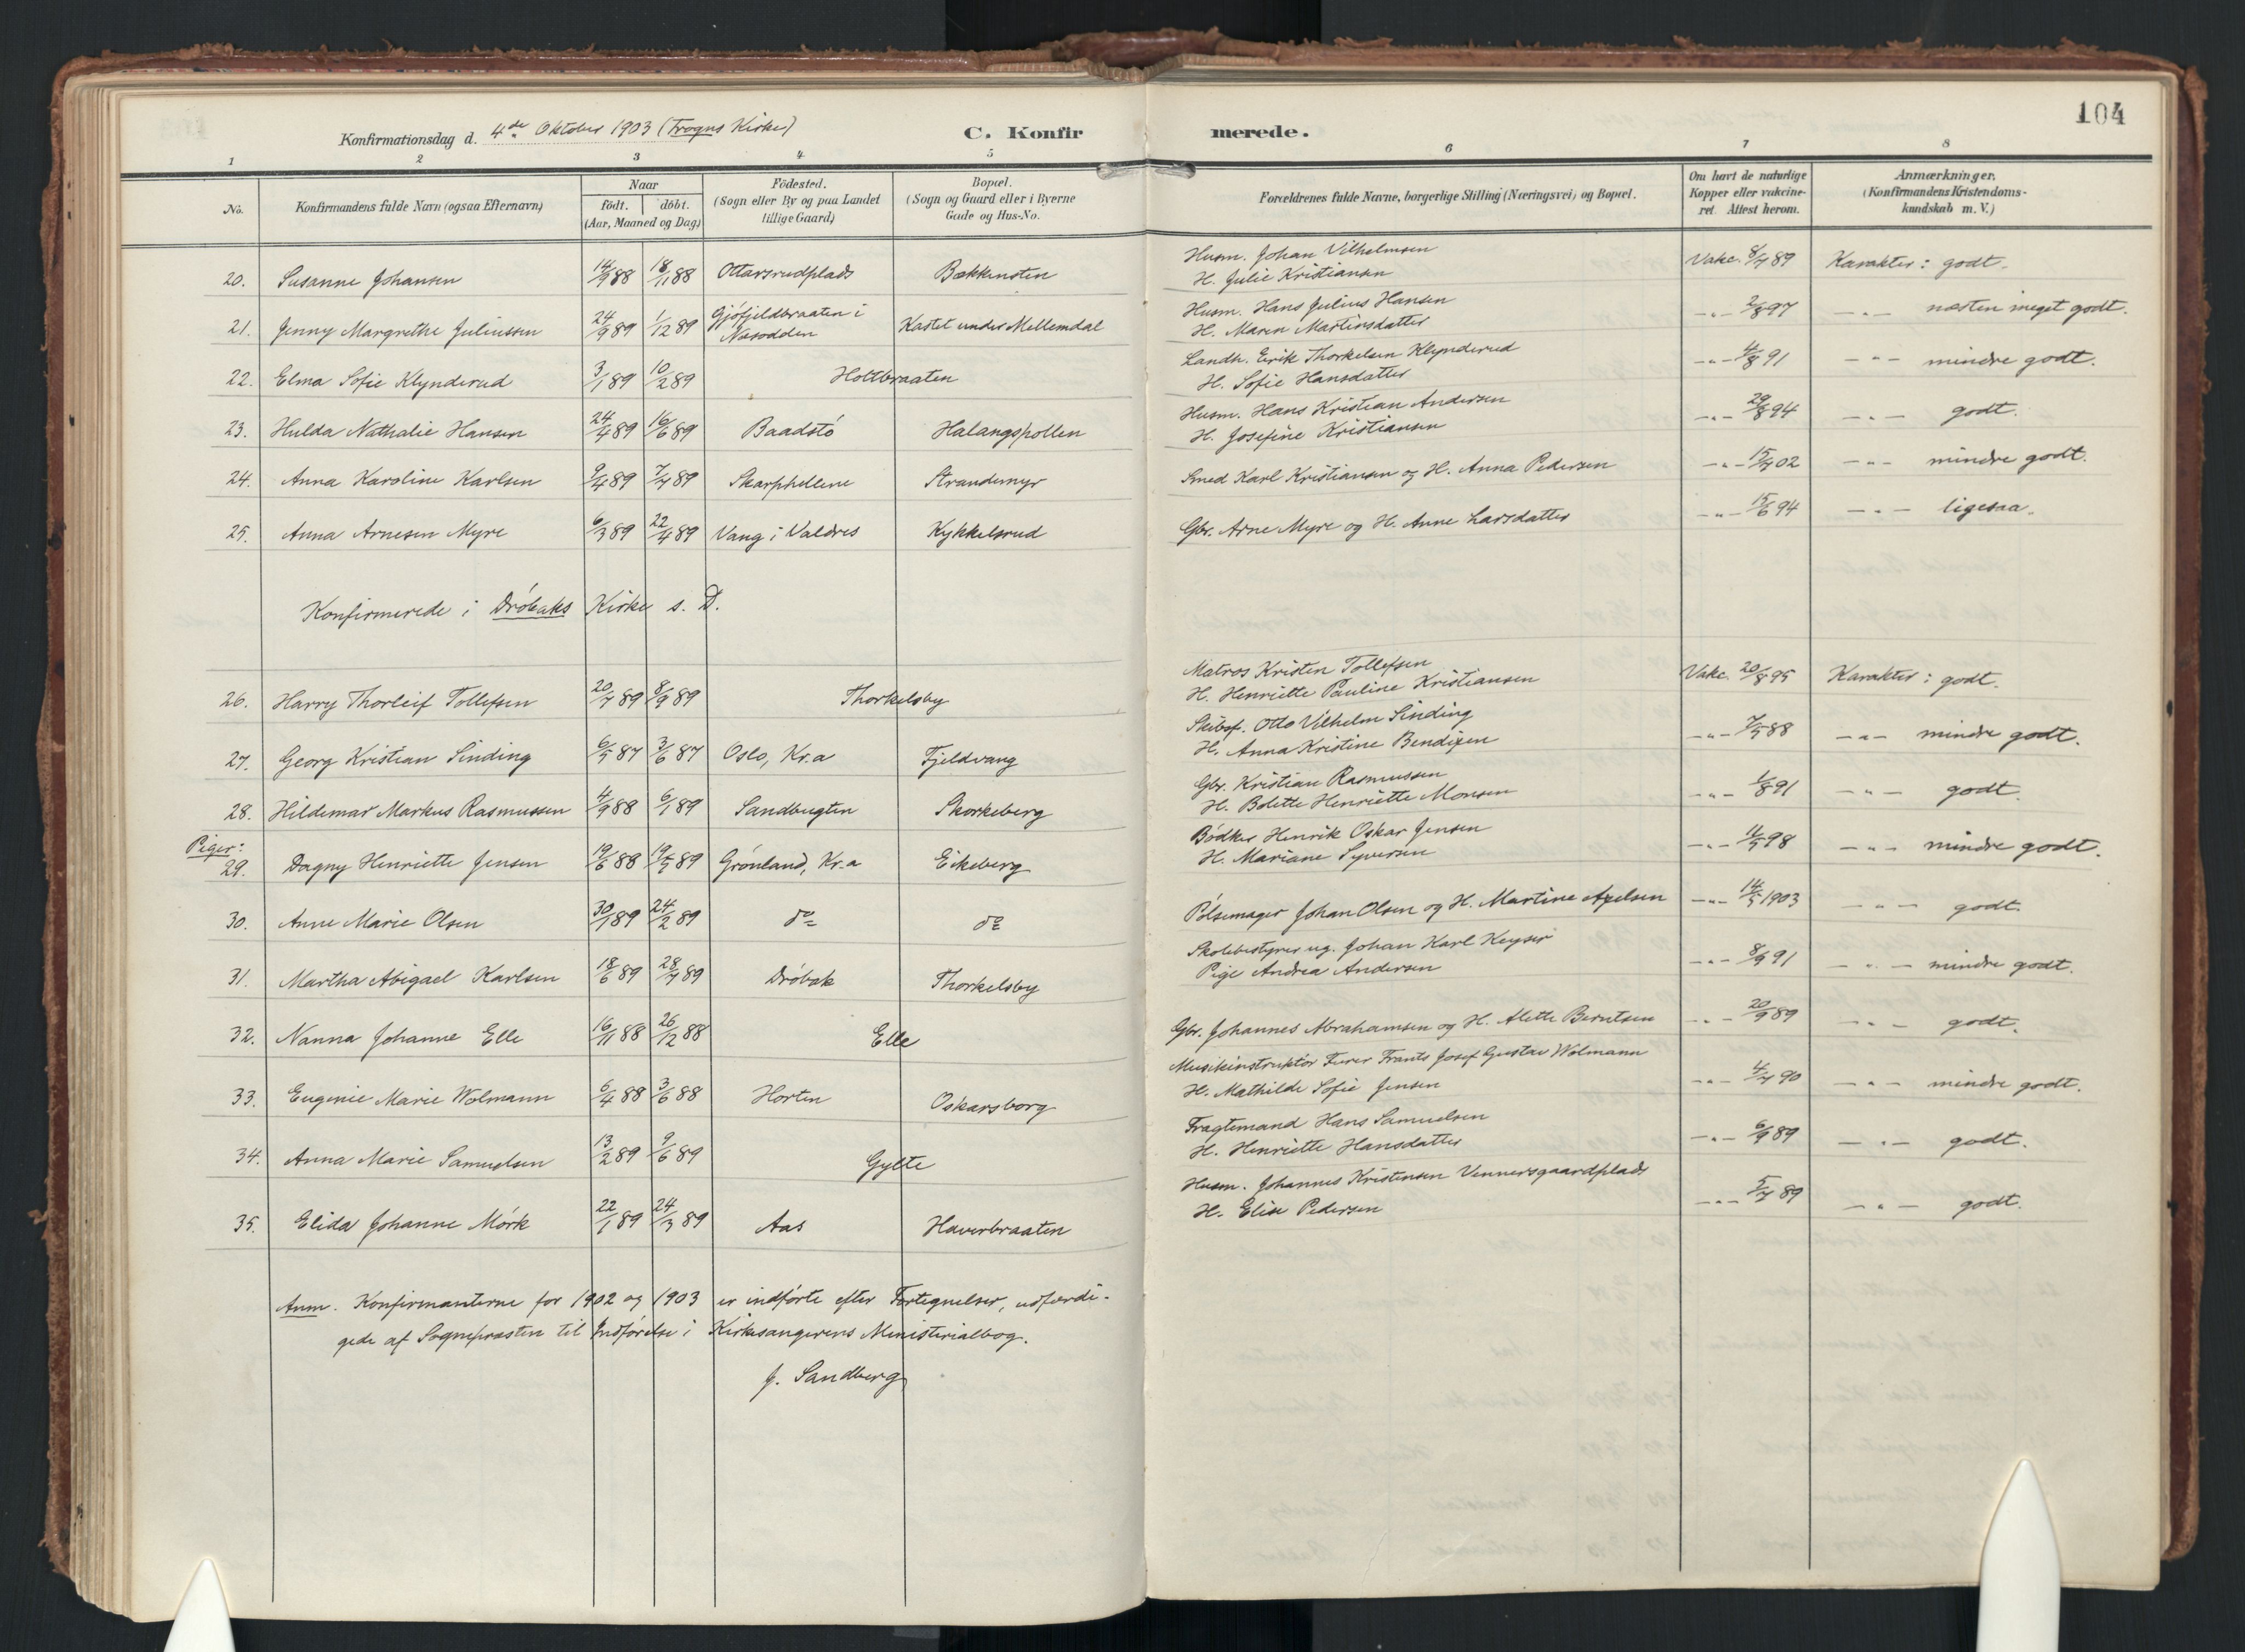 104
Konfirmationsdag d. 4de Oktober 1903 (Frogns Kirke) C. Konfirmerede.
1 2 3 4 5 6 7 8
No. | Konfirmandens fulde Navn (ogsaa Efternavn) | Naar født. døbt. (Aar, Maaned og Dag) | Fødested. (Sogn eller By og paa Landet tillige Gaard) | Bopæl. (Sogn og Gaard eller i Byerne Gade og Hus-No. | Forældrenes fulde Navne, borgerlige Stilling (Næringsvei) og Bopæl. | Om havt de naturlige Kopper eller vakcineret. Attest herom. | Anmærkninger. (Konfirmandens Kristendomskundskab m. V.)
20. Susanne Johansen 14/9 88 18/11 88 Ottarsrudplads Bækkensten Husm. Johan Vilhelmsen H. Julie Kristiansen Vakc. 8/7 89 Karakter: godt.
21. Jenny Margrethe Juliussen 24/9 89 1/12 89 Gjøfjeldbraaten i Næsodden Kastet under Mellemdal Husm. Hans Julius Hansen H. Maren Martinsdatter -"- 2/8 97 -"- næsten meget godt.
22. Elma Sofie Klynderud 3/1 89 10/2 89 Holtbraaten Landh. Erik Thorkelsen Klynderud H. Sofie Hansdatter -"- 4/8 91 -"- mindre godt.
23. Hulda Nathalie Hansen 24/4 89 16/6 89 Baadstö Halangspollen Husm. Hans Kristian Andersen H. Josefine Kristiansen -"- 29/8 94 -"- godt.
24. Anna Karoline Karlsen 9/4 89 7/7 89 Skarphellene Strandemyr Smed Karl Kristiansen og H. Anna Pedersen -"- 15/7 02 -"- mindre godt.
25. Anna Arnesen Myre 6/3 89 22/4 89 Vang i Valdres Kykkelsrud Gbr. Arne Myre og H. Anne Larsdatter -"- 15/6 94 -"- ligesaa.
Konfirmerede i Dröbaks Kirke s. D.
26. Harry Thorleif Tollefsen 20/7 89 8/9 89 Thorkelsby Matros Kristen Tollefsen H. Henriette Pauline Kristiansen Vakc. 20/8 95 Karakter: godt.
27. Georg Kristian Sinding 6/5 87 3/6 87 Oslo, Kr.a Fjeldvang Skibsf. Otto Vilhelm Sinding H. Anna Kristine Bendixen -"- 7/5 88 -"- mindre godt.
28. Hildemar Markus Rasmussen 4/9 88 6/1 89 Sandbugten Skorkeberg Gbr. Kristian Rasmussen H. Bolette Henriette Monsen -"- 1/8 91 -"- godt.
Piger:
29. Dagny Henriette Jensen 19/6 88 19/5 89 Grönland, Kr.a Eikeberg Bödker Henrik Oskar Jensen H. Mariane Syversen -"- 11/5 98 -"- mindre godt.
30. Anne Marie Olsen 30/1 89 24/2 89 do do Pölsemager Johan Olsen og H. Martine Axelsen -"- 14/5 1903 -"- godt.
31. Martha Abigael Karlsen 18/6 89 28/7 89 Dröbak Thorkelsby Skolebestyrer ug. Johan Karl Keyser Pige Andrea Andersen -"- 8/9 91 -"- mindre godt.
32. Nanna Johanne Elle 16/11 88 26/12 88 Elle Gbr. Johannes Abrahamsen og H. Alette Berntsen -"- 20/9 89 -"- godt.
33. Eugenie Marie Wolmann 6/4 88 3/6 88 Horten Oskarsborg Musikinstruktör Furer Frants Josef Gustav Wolmann H. Mathilde Sofie Jensen -"- 4/7 90 -"- mindre godt.
34. Anna Marie Samuelsen 13/2 89 9/6 89 Gylte Fragtemand Hans Samuelsen H. Henriette Hansdatter -"- 6/9 89 -"- godt.
35. Elida Johanne Mörk 22/1 89 24/3 89 Aas Haverbraaten Husm. Johannes Kristensen Vennersgaardplads H. Elise Pedersen -"- 5/7 89 -"- godt.
Anm. Konfirmanterne for 1902 og 1903 er indförte efter Fortegnelser, udfærdi-
gede af Sognepræsten til Indförelse i Kirkesangerens Ministerialbog.
J. Sandberg